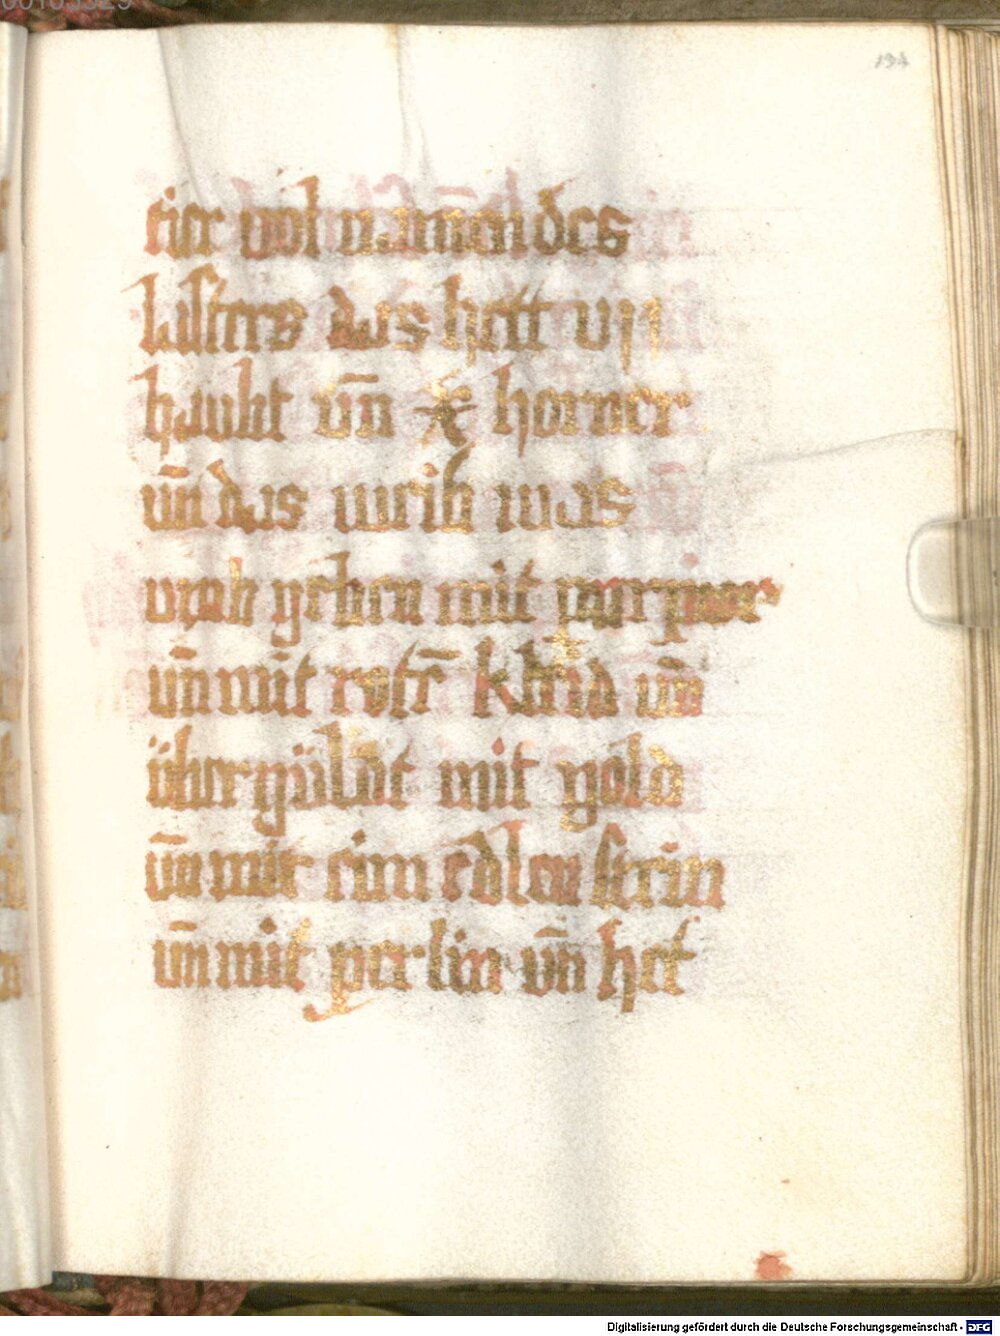 194
tier vol namen des
lasters das hett vij
haubt vn̄ x horner
vn̄ das weib was
vmb geben mit purpur
vn̄ mit rotr̄ klaid vn̄
übergüldt mit gold
vn̄ mit eim edlen stein
vn̄ mit perlin vn̄ het
Digitalisierung gefördert durch die Deutsche Forschungsgemeinschaft - DFG